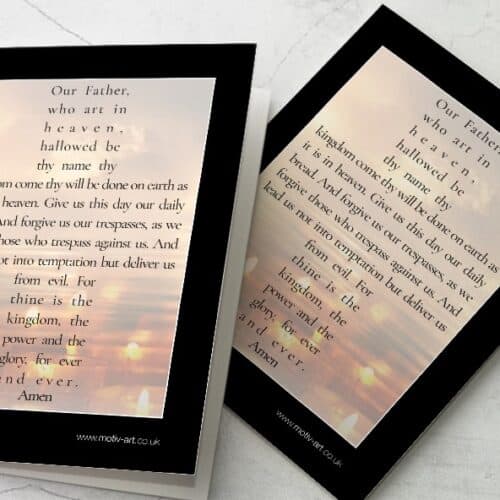 Our Father,
who art in
heaven,
hallowed be
thy name thy
om come thy will be done on earth as
heaven. Give us this day our daily
And forgive us our trespasses, as we
hose who trespass against us. And
ot into temptation but deliver us
from evil. For
thine is the
kingdom, the
power and the
glory, for ever
and ever.
Amen
www.motiv-art.co.uk
Our Father,
who art in
heaven,
hallowed be
thy name thy
kingdom come thy will be done on earth
it is in heaven. Give us this day our daily
bread. And forgive us our trespasses, as we
forgive those who trespass against us. And
lead us not into temptation but deliver us
from evil. For
thine is the
kingdom, the
power and the
glory, for ever
and ever.
Amen
www.motiv-art.co.uk